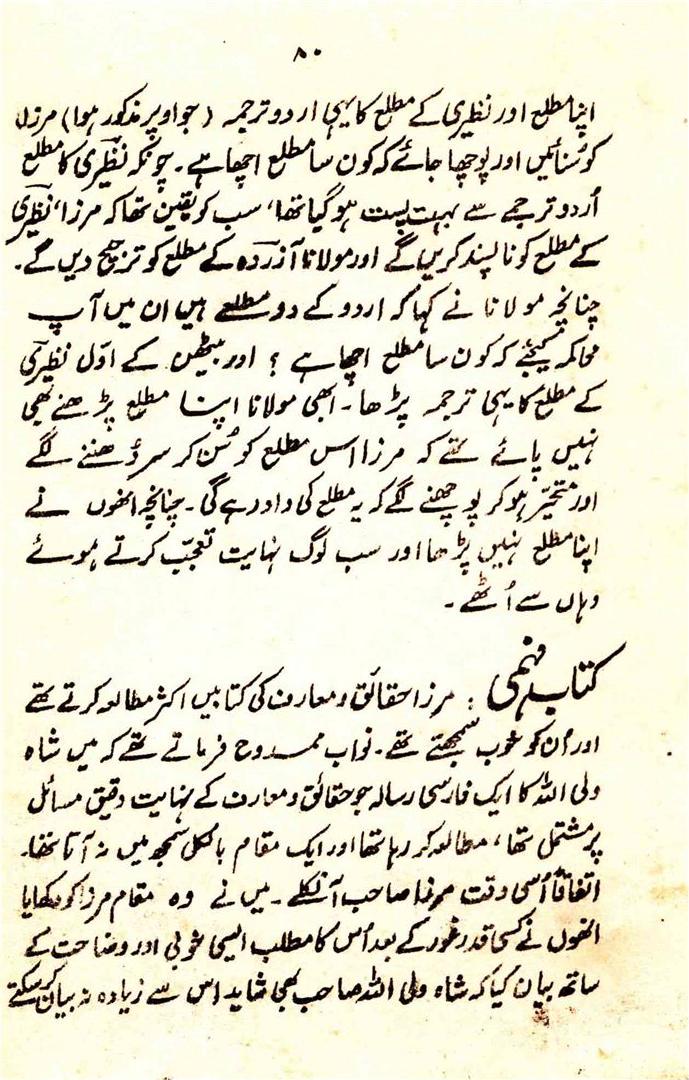 ۸۰
اپنا مطلع اور نظیری کے مطلع کا یہی اردو ترجمہ (جو اوپر مذکور ہوا) مرزا
کو سُنائیں اور پوچھا جائے کہ کون سا مطلع اچھا ہے۔ چونکہ نظیری کا مطلع
اُردو ترجمے سے بہت پست ہو گیا تھا، سب کو یقین تھا کہ مرزا، نظیری
کے مطلع کو نا پسند کریں گے اور مولانا آزردہ کے مطلع کو ترجیح دیں گے۔
چنانچہ مولانا نے کہا کہ اردو کے دو مطلعے ہیں ان میں آپ
محاکمہ کیجئے کہ کون سا مطلع اچھا ہے؟ اور بیٹھیں کے اوّل نظیری
کے مطلع کا یہی ترجمہ پڑھا۔ ابھی مولانا اپنا مطلع پڑھنے بھی
نہیں پائے تھے کہ مرزا اس مطلع کو سُن کر سر دُھننے لگے
اور متحیّر ہو کر پوچھنے لگے کہ یہ مطلع کی داد رہے گی۔ چنانچہ انھوں نے
اپنا مطلع نہیں پڑھا اور سب لوگ نہایت تعجّب کرتے ہوئے
وہاں سے اُٹھے۔
کتاب فہمی : مرزا حقائق و معارف کی کتابیں اکثر مطالعہ کرتے تھے
اور اُن کو خوب سمجھتے تھے۔ نواب ممدوح فرماتے تھے کہ میں شاہ
ولی اللہؒ کا ایک فارسی رسالہ جو حقائق و معارف کے نہایت دقیق مسائل
پر مشتمل تھا، مطالعہ کر رہا تھا اور ایک مقام بالکل سمجھ میں نہ آتا تھا۔
اتفاقاً اُسی وقت مرزا صاحب آ نکلے۔ میں نے وہ مقام مرزا کو دکھایا
انھوں نے کسی قدر غور کے بعد اُس کا مطلب ایسی خوبی اور وضاحت کے
ساتھ بیان کیا کہ شاہ ولی اللہ صاحب بھی شاید اس سے زیادہ نہ بیان کر سکتے